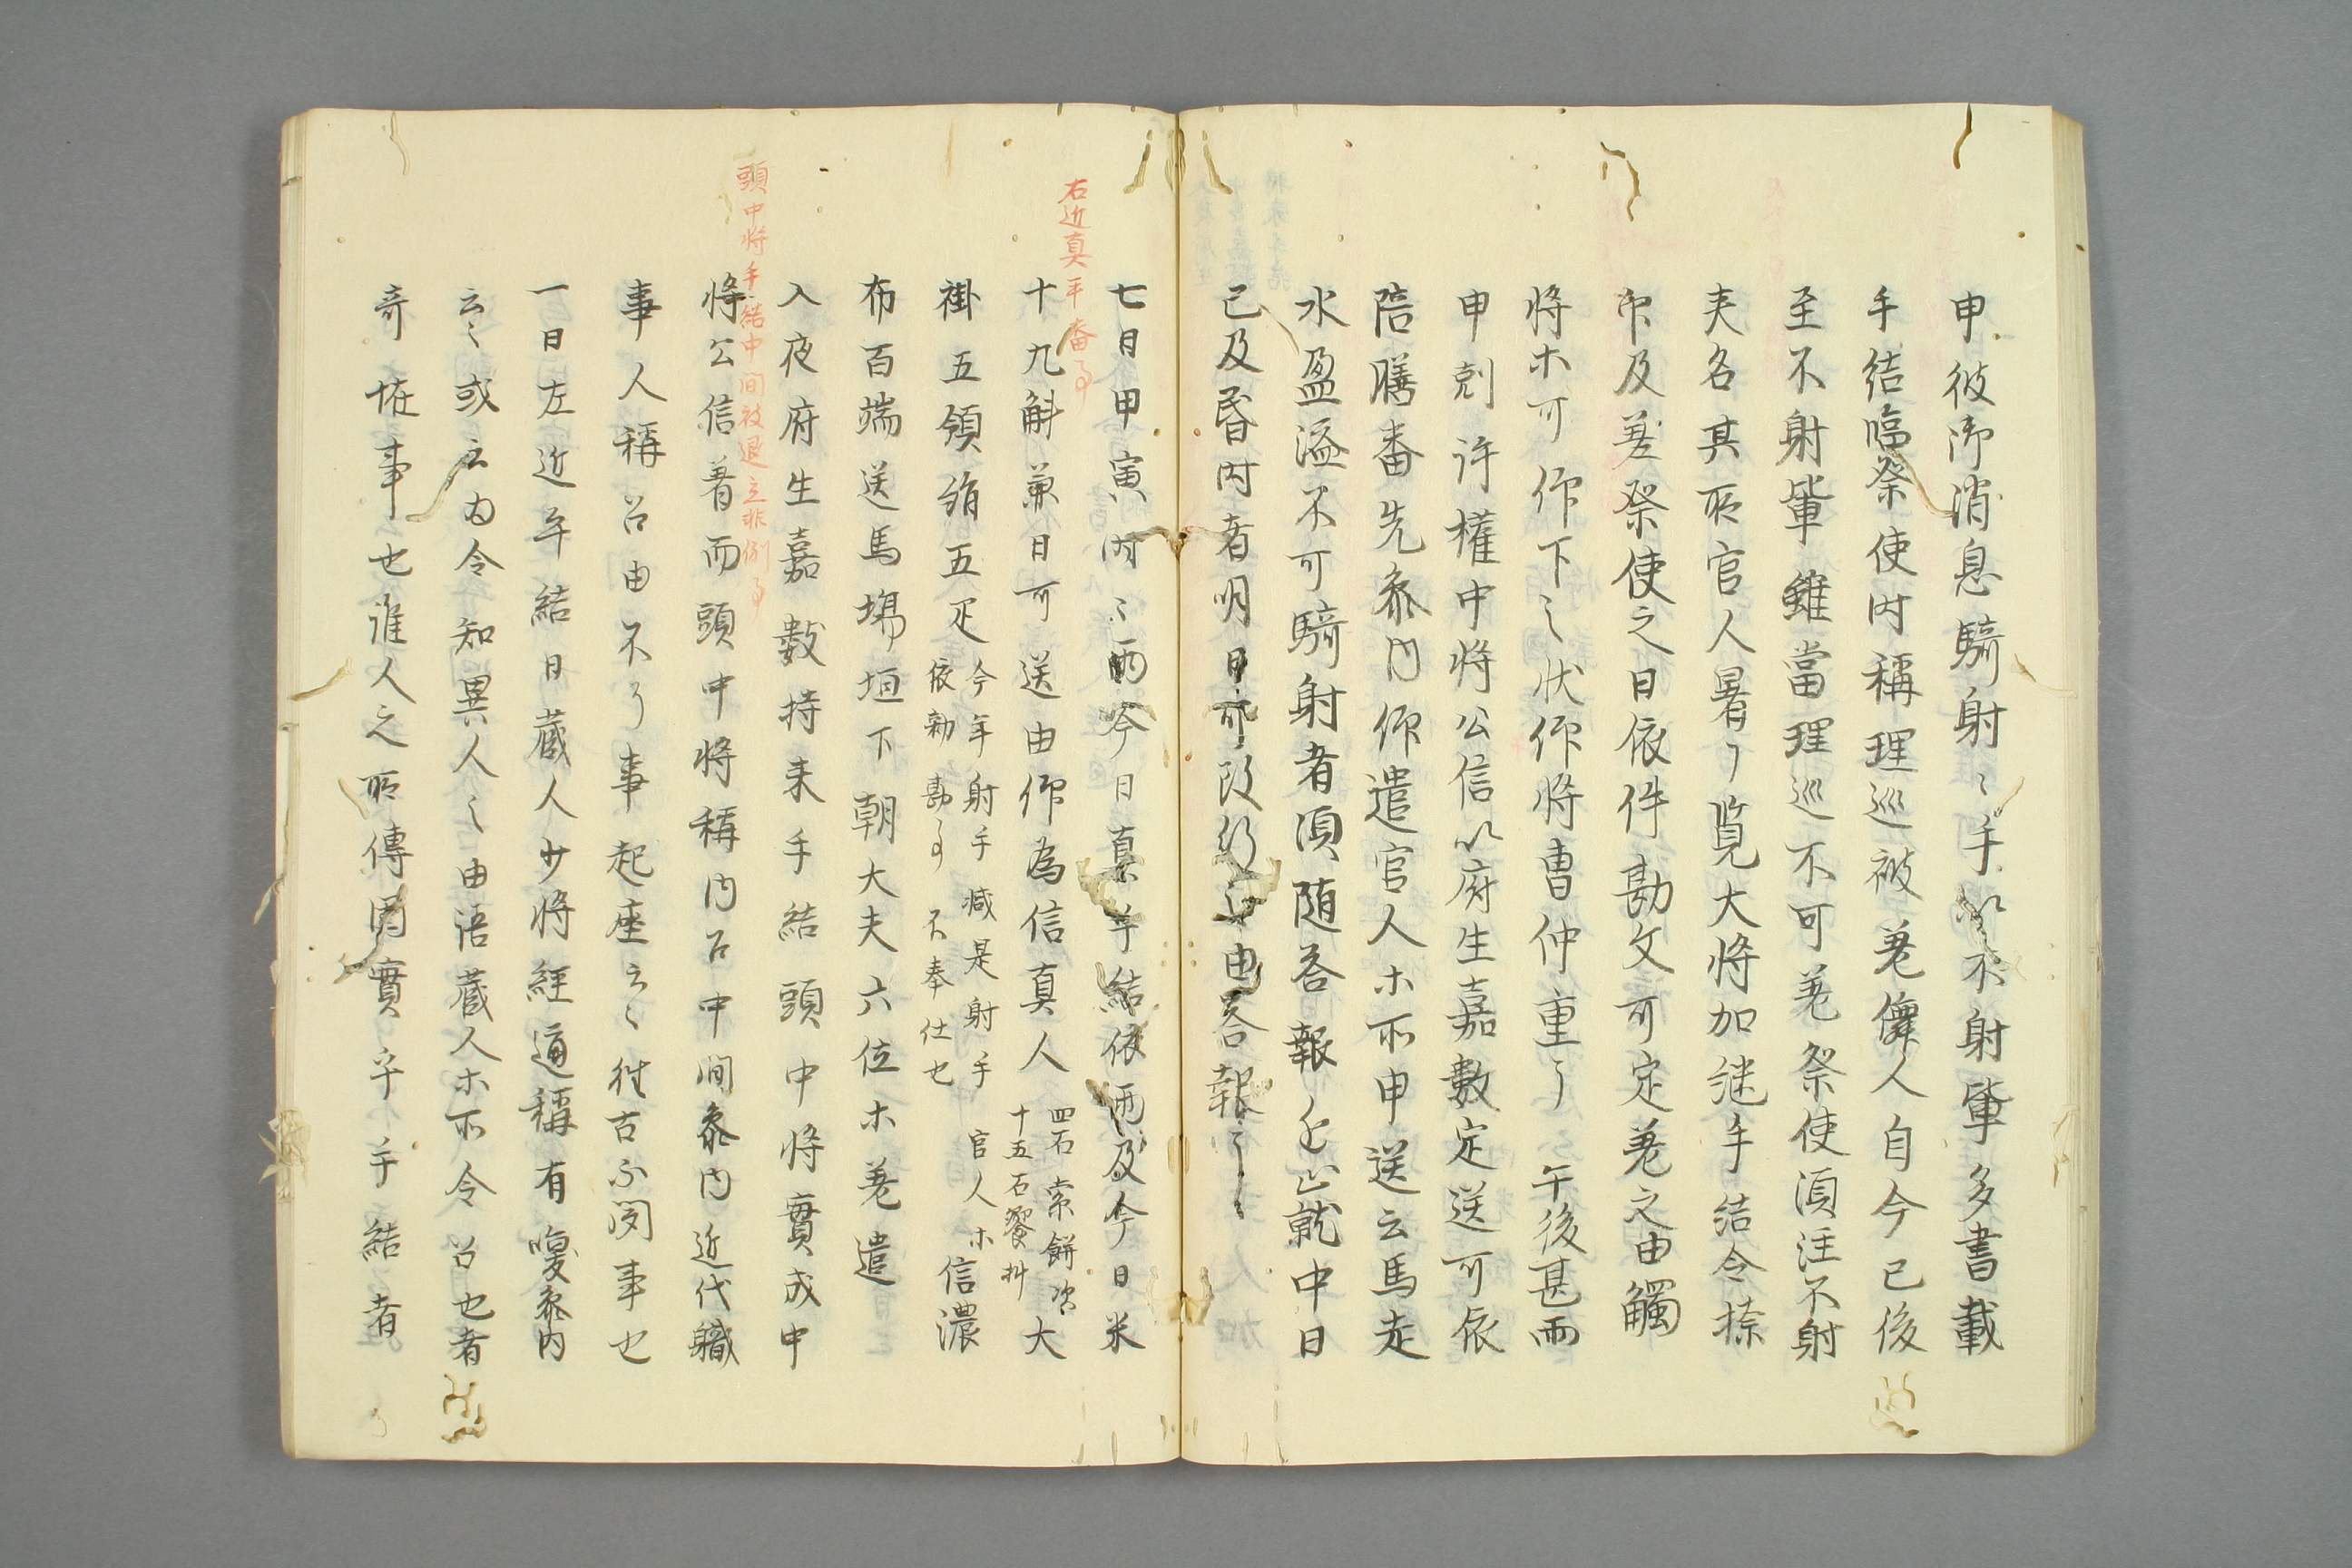 申彼御消息騎射〻手以不射輩多書載
手結臨祭使時稱理巡被差儛人自今已後
至不射輩雖當理巡不可差祭使須注不射
夫名其所官人署了覧大将加继手結令捺
印及差祭使之日依件勘文可定差之由觸
将木可仰下之状仰将曹仲重了 午後甚雨
申剋許權中将公信以府生嘉數定送可依
陪膳番先參内仰遣官人木所申送云馬走
水盈溢不可騎射者須随荅報進止就中日
已及昏時者明日可改行之由荅報了
七日甲寅時〻雨今日真手結依雨及今日米
十九斛兼日可送由仰為信真人 四石索餅料 十五石饗料 大
褂五領絹五疋 今年射手減是射手官人木 依勅勘事不奉仕也 信濃
布百端送馬場垣下朝大夫六位木差遣
入夜府生嘉數持来手結頭中将實成中
将公信着而頭中将稱内召中間參内近代職
事人稱召由不了事起座云〻往古不聞事也
一日左近年結日蔵人少将経通稱有㖟參内
云〻或云為令知異人之由語蔵人木所令召也者
奇恠事也誰人之所傳国實乎手結者
右近真手番事
頭中将手結中間被退立非例事